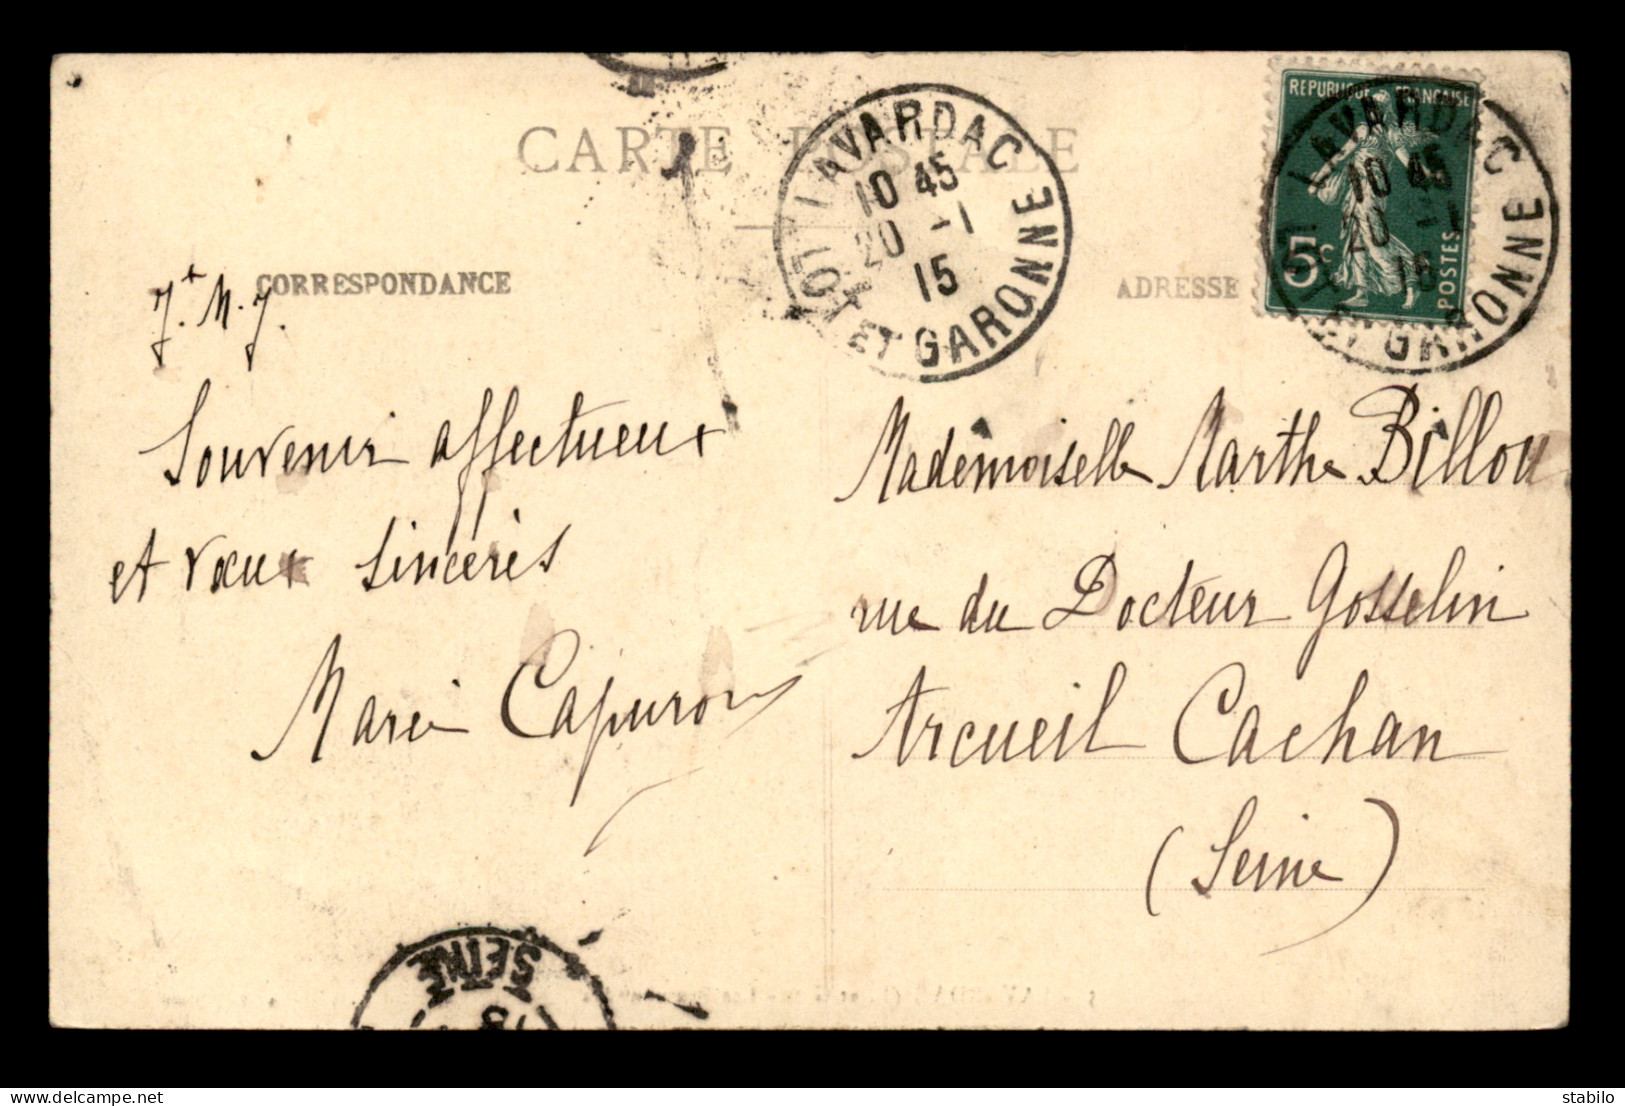 CARTE POSTALE
CORRESPONDANCE
ADRESSE
LAVARDAC
10 45
20 -1
15
LOT ET GARONNE
REPUBLIQUE FRANÇAISE
5c
POSTES
LAVARDAC
10 45
20 -1
15
LOT ET GARONNE
J. M. J.
Souvenir affectueux
et vœux sincères
Marie Capuron
Mademoiselle Marthe Billou
rue du Docteur Gosselin
Arcueil Cachan
(Seine)
SEINE
stabilo
delcampe.net